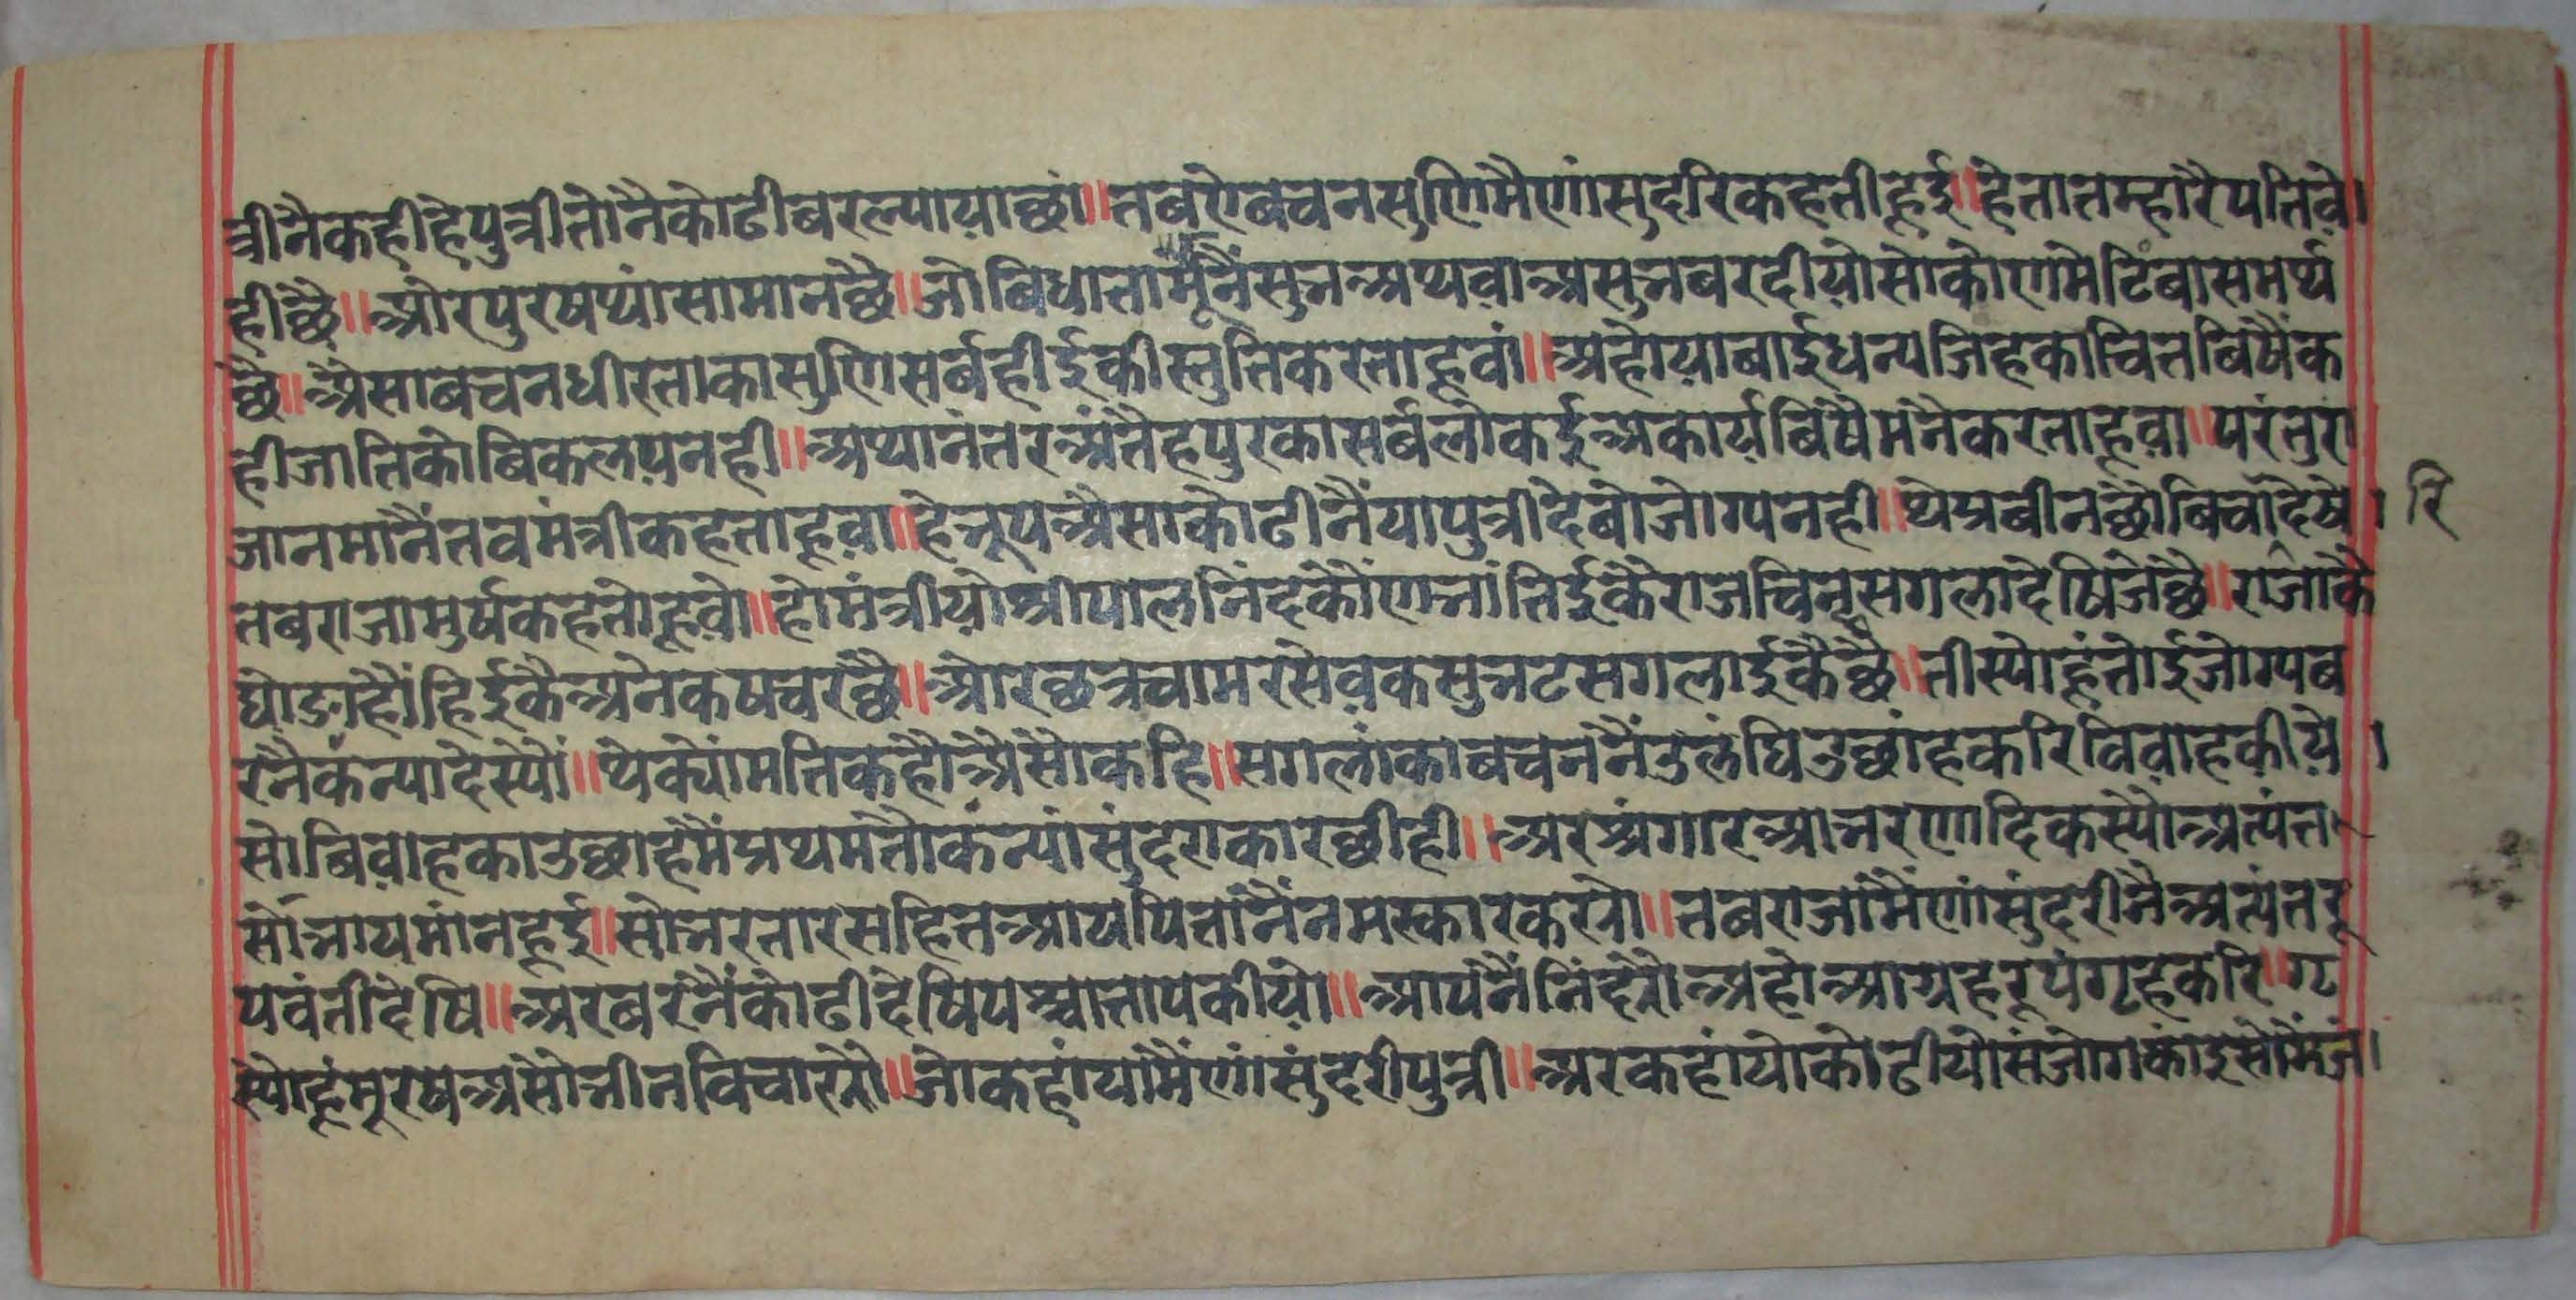 त्रीनैकहीहेपुत्रीतोनैकोढीबरल्यायाछां॥तबऐबचनसुणिमैणांसुदरिकहतीहूई॥हेतातम्हारैपतिवो
हीछै॥औरपुरषप्यांसामानछै॥जोबिधातामूनैंसुभअथवाअसुभबरदीयोसोकोणमेटिबासमर्थ
छै॥ऐसाबचनधीरताकासुणिसर्बहीईकीस्तुतिकरताहूवां॥अहोयाबाईधन्यजिहकाचितबिषैंक
हीजातिकोबिकलपनही॥अथानंतरअंतैहपुरकासर्बलोकईअकार्यबिषैमनैकरताहूवा॥परंतुरा
जानमानैंतवमंत्रीकहताहूवा॥हेनृपऐसाकोढीनैंयापुत्रीदेबोजोग्यनही॥थेप्रबीनछोबिचारिदेषो
तबराजामुर्षकहतोहूवो॥होमंत्रीयोश्रीपालनिंदकौंणभांतिईकैराजचिन्हसगलादेषिजेछै॥राजाकै
घोडाहौंहिईकैअनेकषचरछै॥ओरछत्रचामरसेवकसुभटसगलाईकैछै॥तीस्योहूंतोईजोग्यब
रनैकंन्यादेस्यौं॥थेक्योंमतिकहौऐसौकहि॥सगलांकाबचननैंउलंघिउछांहकरिविवाहकीयो
सोबिवाहकाउछाहमैंप्रथमतौकंन्यांसुंदराकारछीही॥अरश्रंगारआभरणादिकस्यौअत्यंत
सोभायमांनहूई॥सोभरतारसहितआयपितांनैंनमस्कारकरयो॥तबराजांमैंणांसुंदरीनैअत्यंतरू
पवंतीदेषि॥अरबरनैंकोढीदेषिपश्चातापकीयो॥आपनैंनिंदेरोअहोआग्रहरूपगृहकरि॥ग्र
स्योहूंमूरषअसौभीनविचारयो॥जोकहांयामैंणांसुंदरीपुत्री॥अरकहांयोकोढीयोसंजोगकांइसोमैंजं